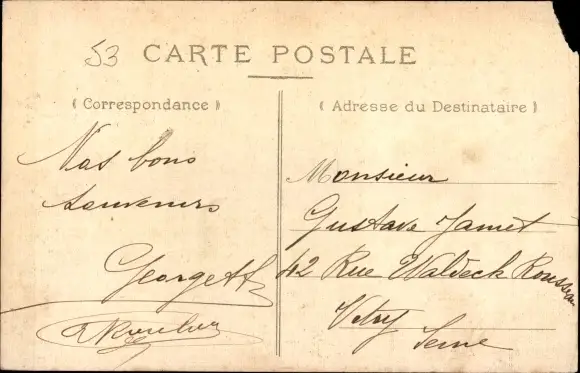 53
CARTE POSTALE
( Correspondance )
Nos bons
souvenirs
Georgette
( Adresse du Destinataire )
Monsieur
Gustave Jamet
42 Rue Waldeck Rousseau
Vitry
Seine